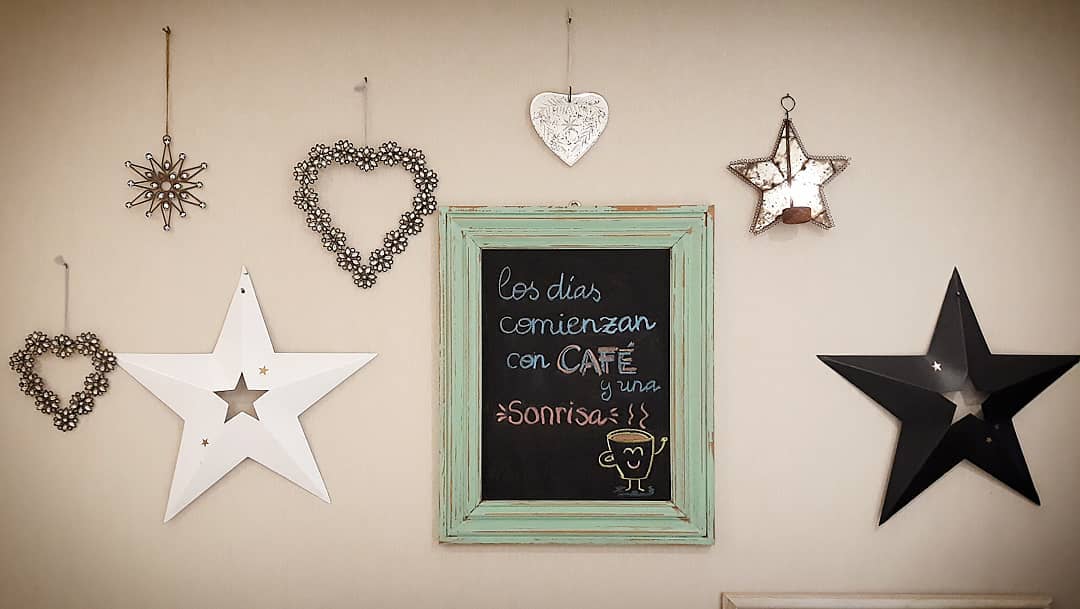 los días
comienzan
con CAFÉ
y una
Sonrisa